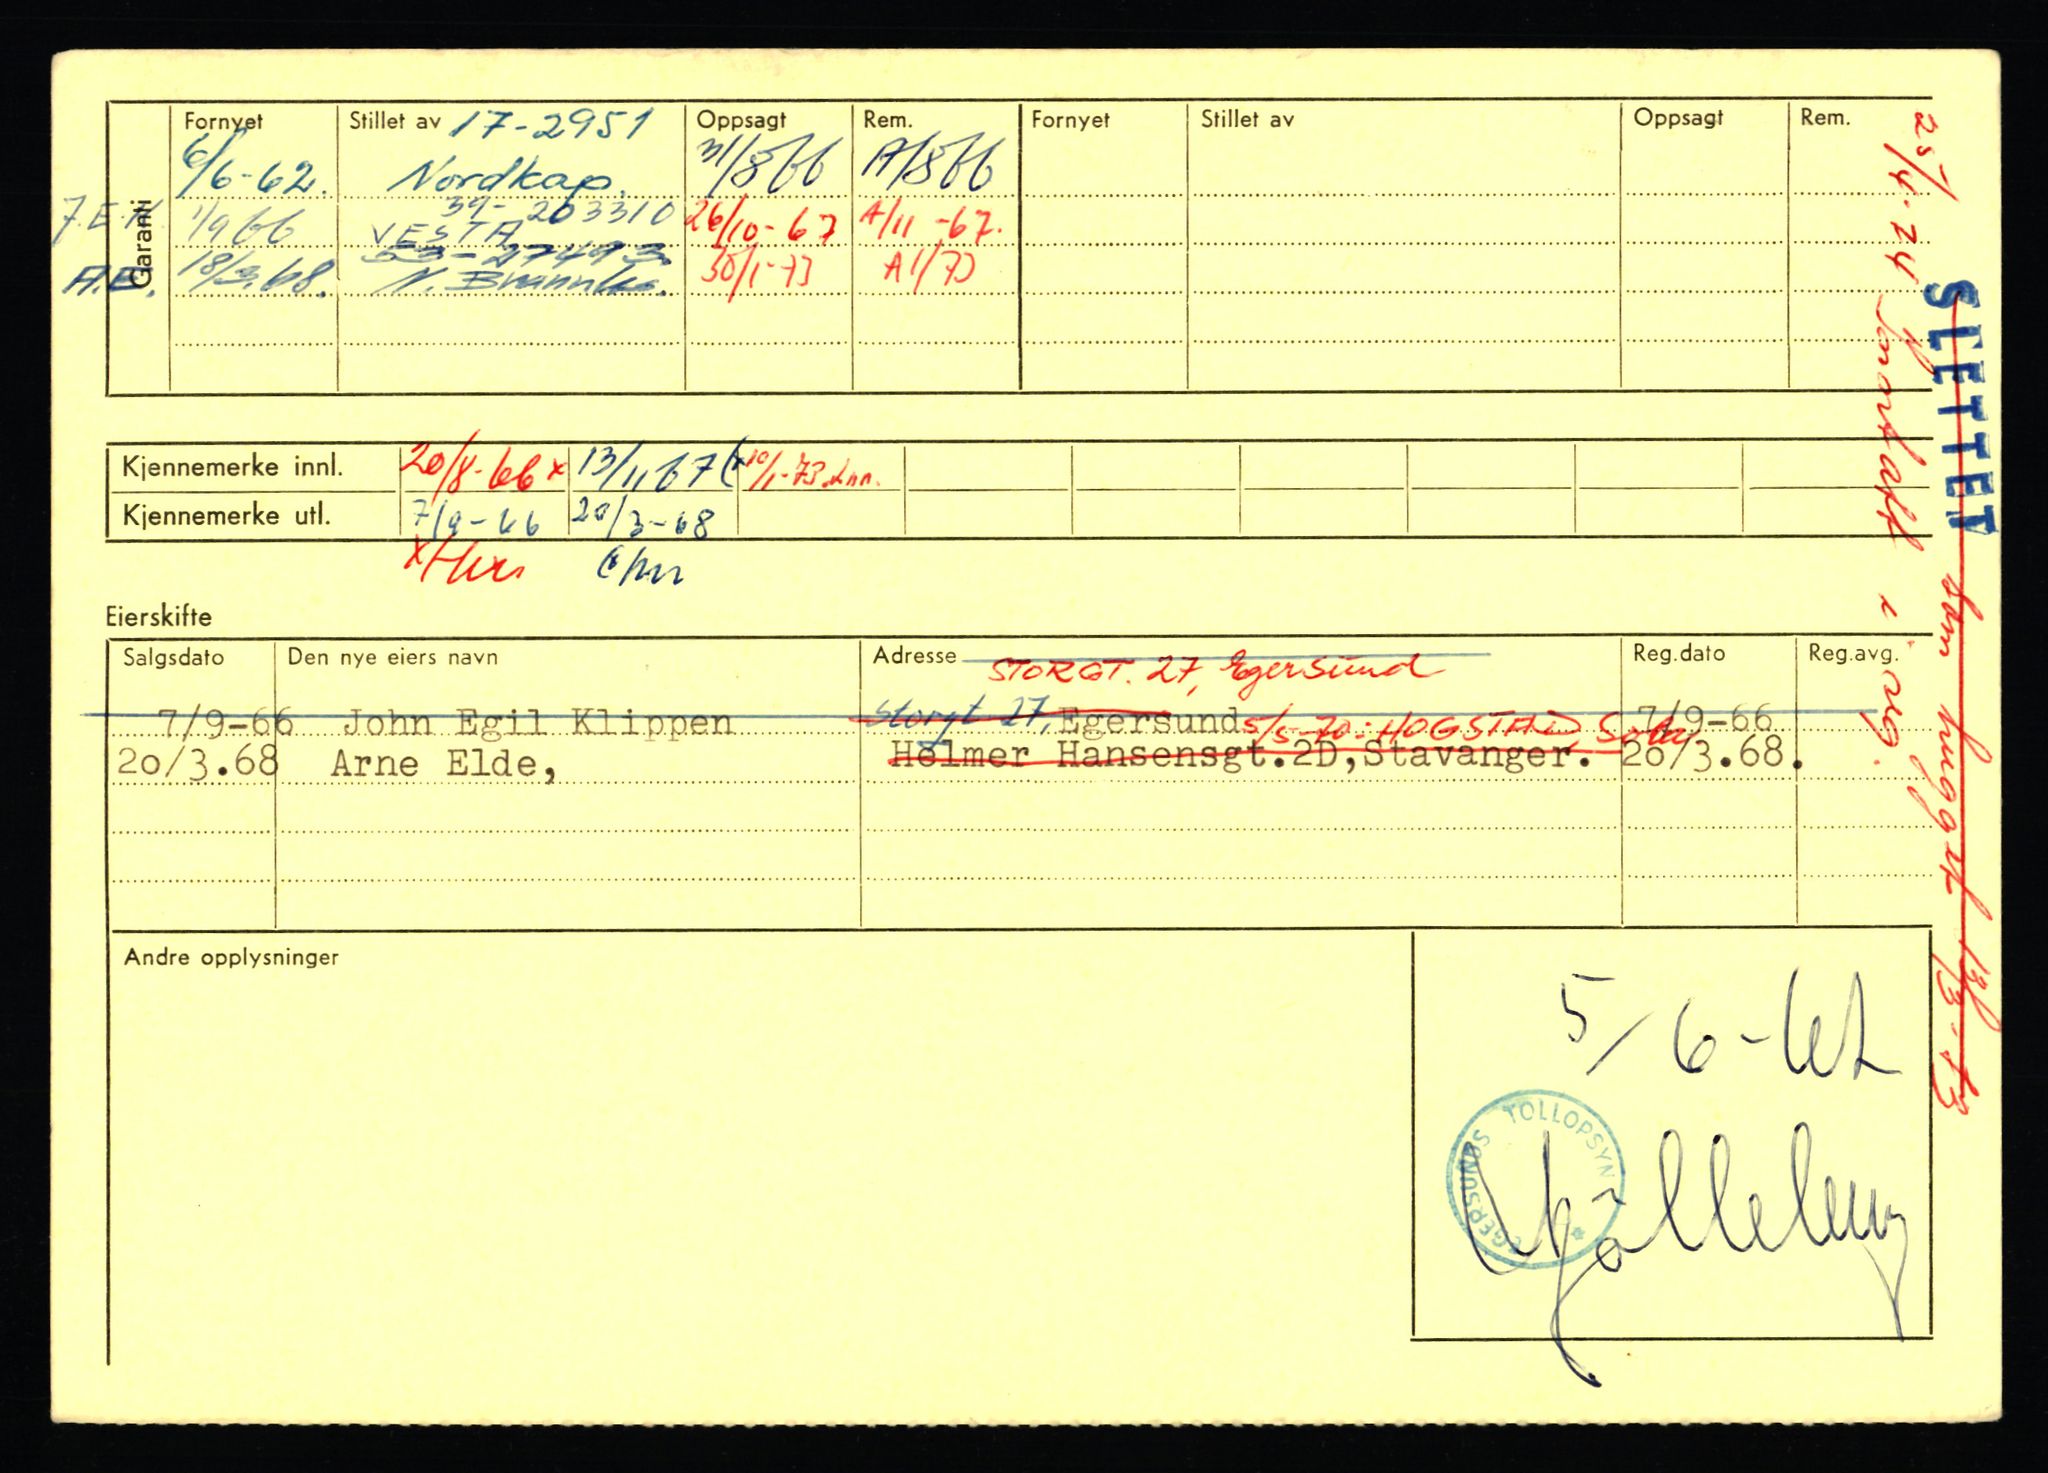 Garanti
Fornyet Stillet av 17-2951 Oppsagt Rem. Fornyet Stillet av Oppsagt Rem.
6/6-62. Nordkap. 31/8 66 A/8 66
39-203310
1/9 66 VESTA 26/10-67 A/11-67.
53-27493
A.E. 18/3.68. N. 30/1-73 A 1/73
Kjennemerke innl. 20/8-66 x 13/11 67 (x 10/1-73
Kjennemerke utl. 7/9-66 20/3-68
Eierskifte
Salgsdato Den nye eiers navn Adresse Reg.dato Reg.avg.
STORGT. 27, Egersund
7/9-66 John Egil Klippen Storgt 27, Egersund 5/5-70: HOGSTAD, 7/9-66
20/3.68 Arne Elde, Helmer Hansensgt.2D, Stavanger. 20/3.68.
Andre opplysninger
5/6-62
EGERSUNDS TOLLOPSYN
25/4-74
SLETTET som hugget